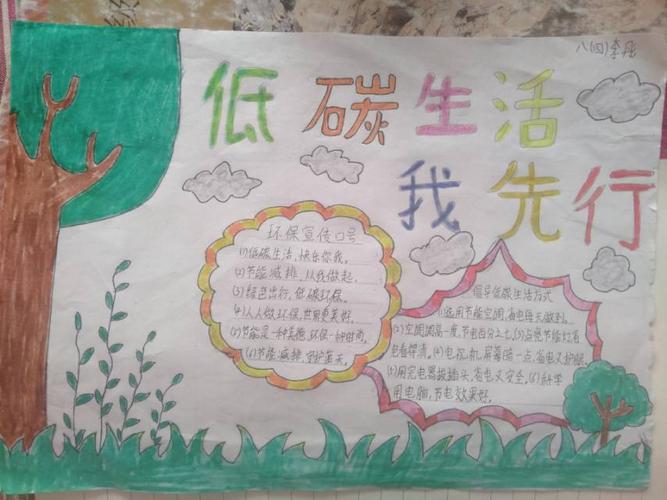 八(四)李丹
低碳生活
我先行
环保宣传口号
(1)低碳生活,快乐你我。
(2)节能减排,从我做起。
(3)绿色出行,低碳环保。
(4)人人做环保,世界更美好。
(5)节能是一种美德,环保一种时尚。
(6)节能减排,守护蓝天。
倡导低碳生活方式
(1)选用节能空调,省电每天做到。
(2)空调调高一度,节电百分之七。(3)点亮节能灯省
电看得清。(4)电视机屏幕暗一点,省电又护眼。
(5)用完电器拔插头,省电又安全。(6)科学
用电脑,节电效果好。